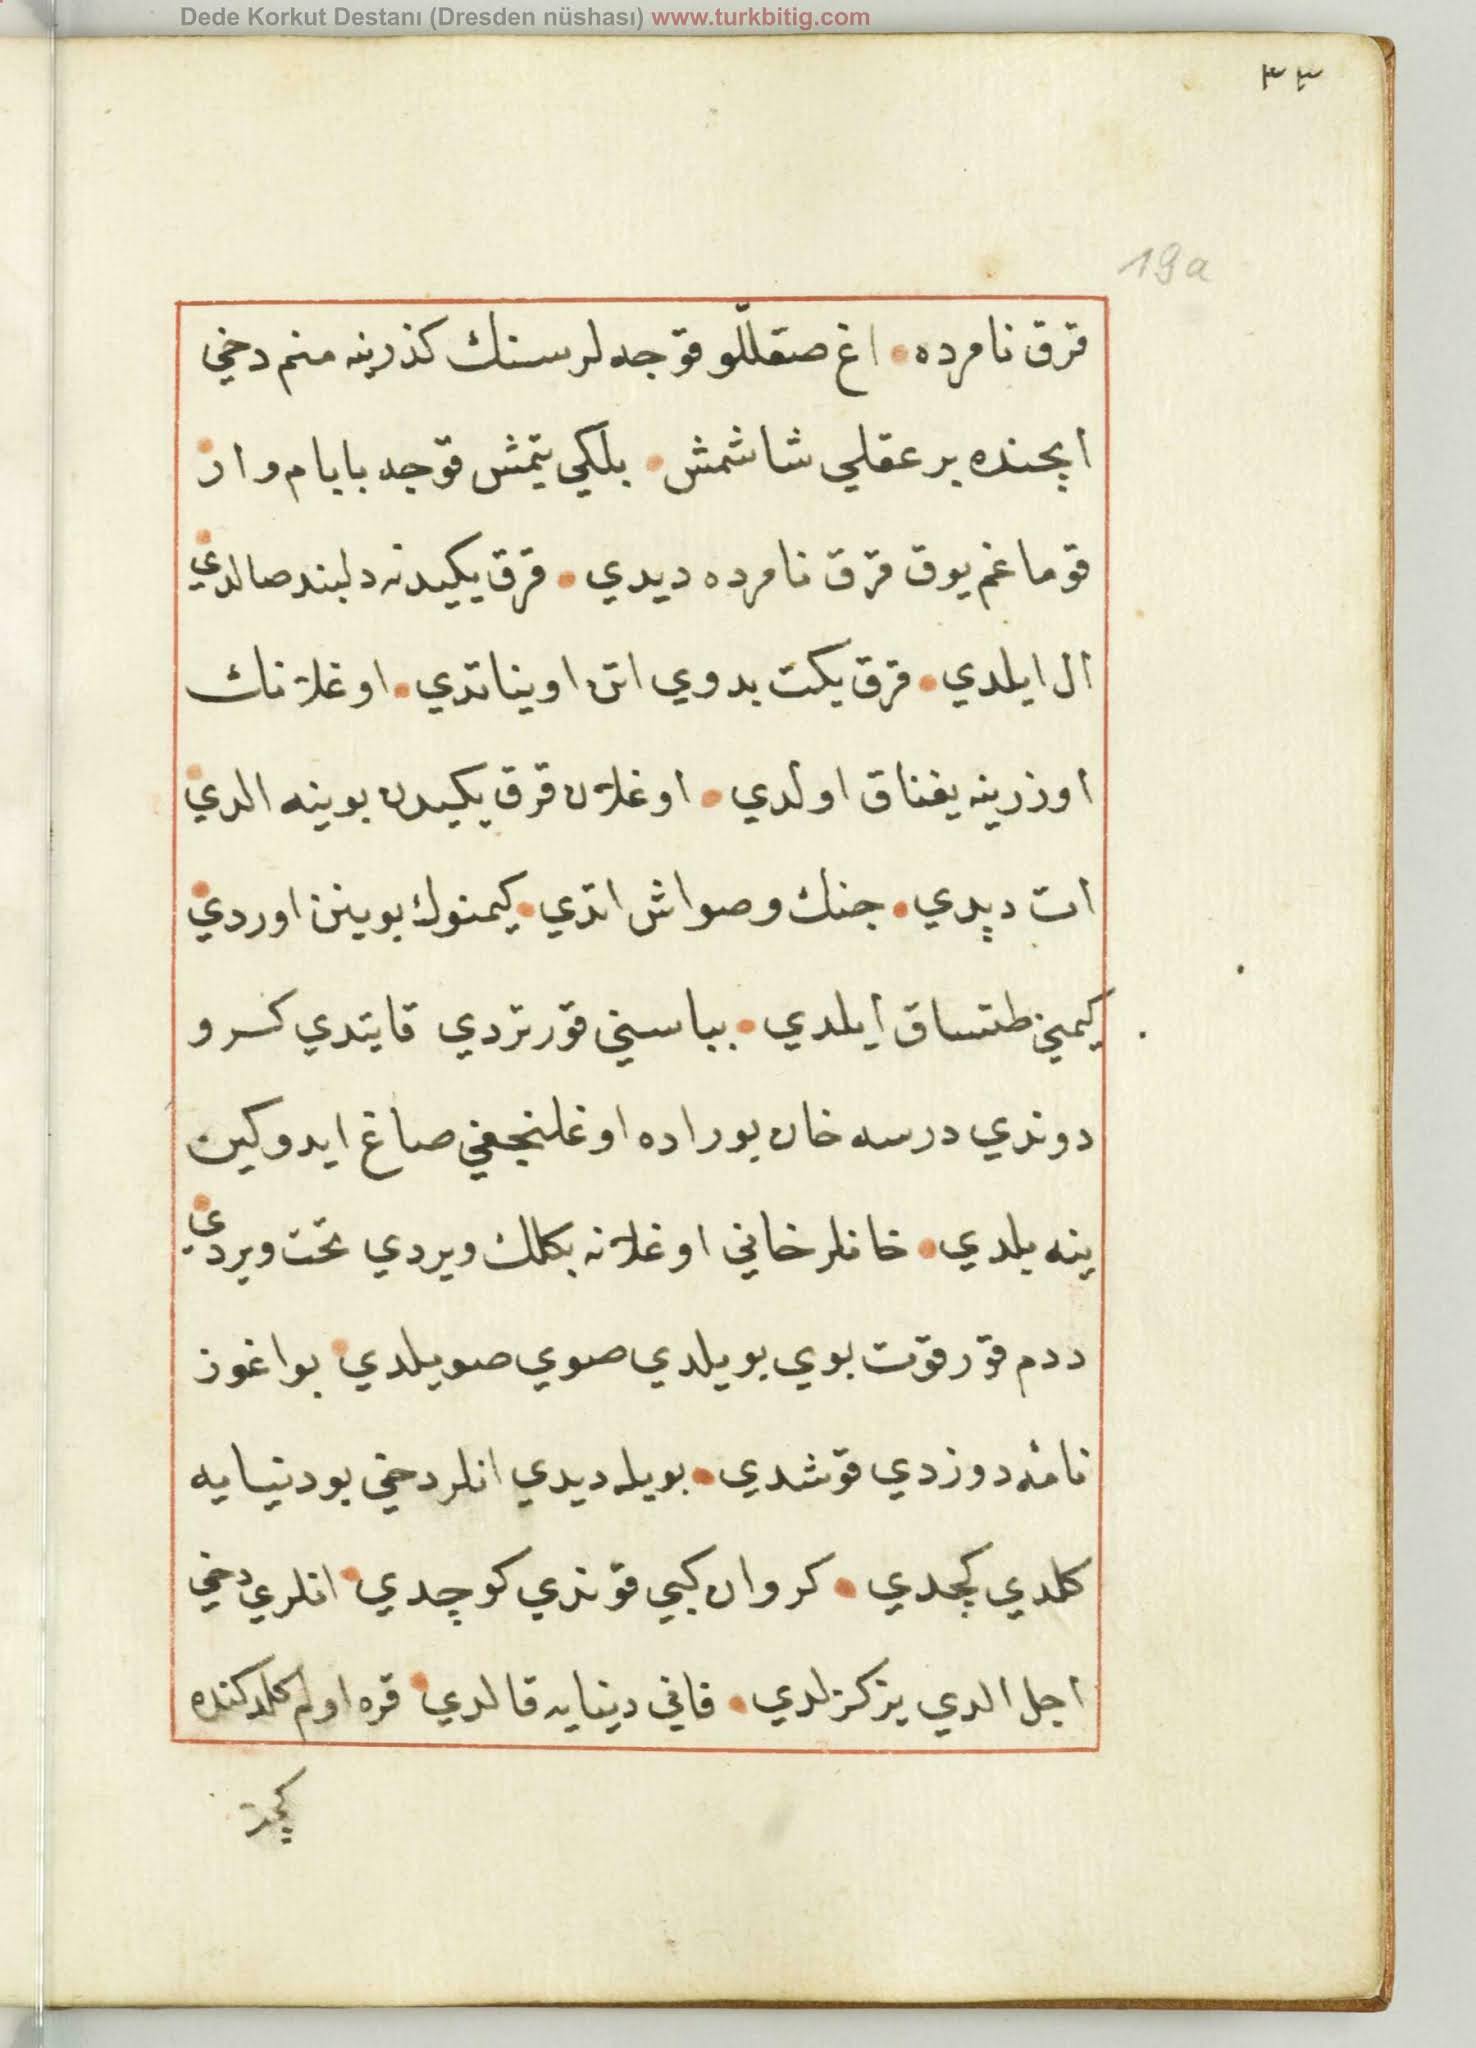 Dede Korkut Destanı (Dresden nüshası) www.turkbitig.com
٣٣
19a
قرق نامرده اغ صقللّو قوجه لر سنك كذرينه منم دخي
ايچنده بر عقلي شاشمش بلكي يتمش قوجه بابام وار
قوماغم يوق قرق نامرده ديدي قرق يكيدنه دلبند صالدي
ال ايلدي قرق يكت بدوي اتن اويناتدي اوغلانك
اوزرينه يغناق اولدي اوغلان قرق يكيدن بوينه الدي
ات دپدي جنك و صواش اتدي كيمنوك بوينن اوردي
كيمين طتساق ايلدي بباسني قورتردي قايتدي كسرو
دوندي درسه خان بوراده اوغلنجغي صاغ ايدوكين
ينه بلدي خانلر خاني اوغلانه بكلك ويردي تخت ويردي
ددم قورقوت بوي بويلدي صوي صويلدي بو اغوز
نامه دوزدي قوشدي بويله ديدي انلر دخي بو دنيايه
كلدي كچدي كروان كبي قوندي كوچدي انلري دخي
اجل الدي ير كزلدي فاني دينايه قالدي قره اولم كلدكنده
كچت